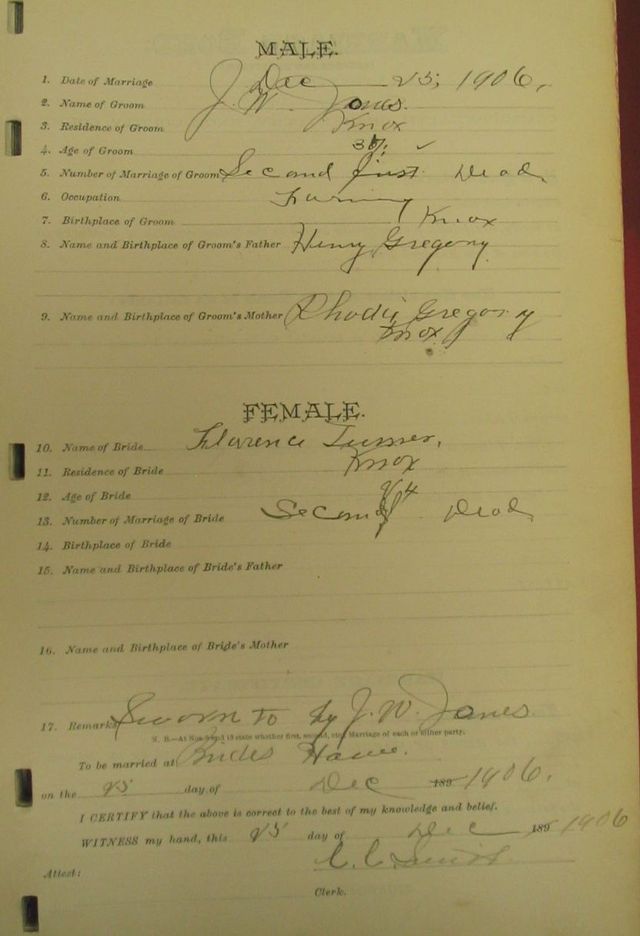 MALE.
1. Date of Marriage Dec 25, 1906.
2. Name of Groom J. W. Jones.
3. Residence of Groom Knox
4. Age of Groom
5. Number of Marriage of Groom Second first Dead
6. Occupation Farming
7. Birthplace of Groom Knox
8. Name and Birthplace of Groom's Father Henry Gregory
9. Name and Birthplace of Groom's Mother Rhodie Gregory
Knox
FEMALE.
10. Name of Bride Florence Turner,
11. Residence of Bride Knox
12. Age of Bride 24
13. Number of Marriage of Bride Second Dead
14. Birthplace of Bride
15. Name and Birthplace of Bride's Father
16. Name and Birthplace of Bride's Mother
17. Remarks Sworn to by J. W. Jones
N. B.—At Nos. 5 and 13 state whether first, second, etc., Marriage of each or either party.
To be married at Brides Home.
on the 25 day of Dec 189 1906.
I CERTIFY that the above is correct to the best of my knowledge and belief.
WITNESS my hand, this 25 day of Dec 189 1906
Attest:
Clerk.